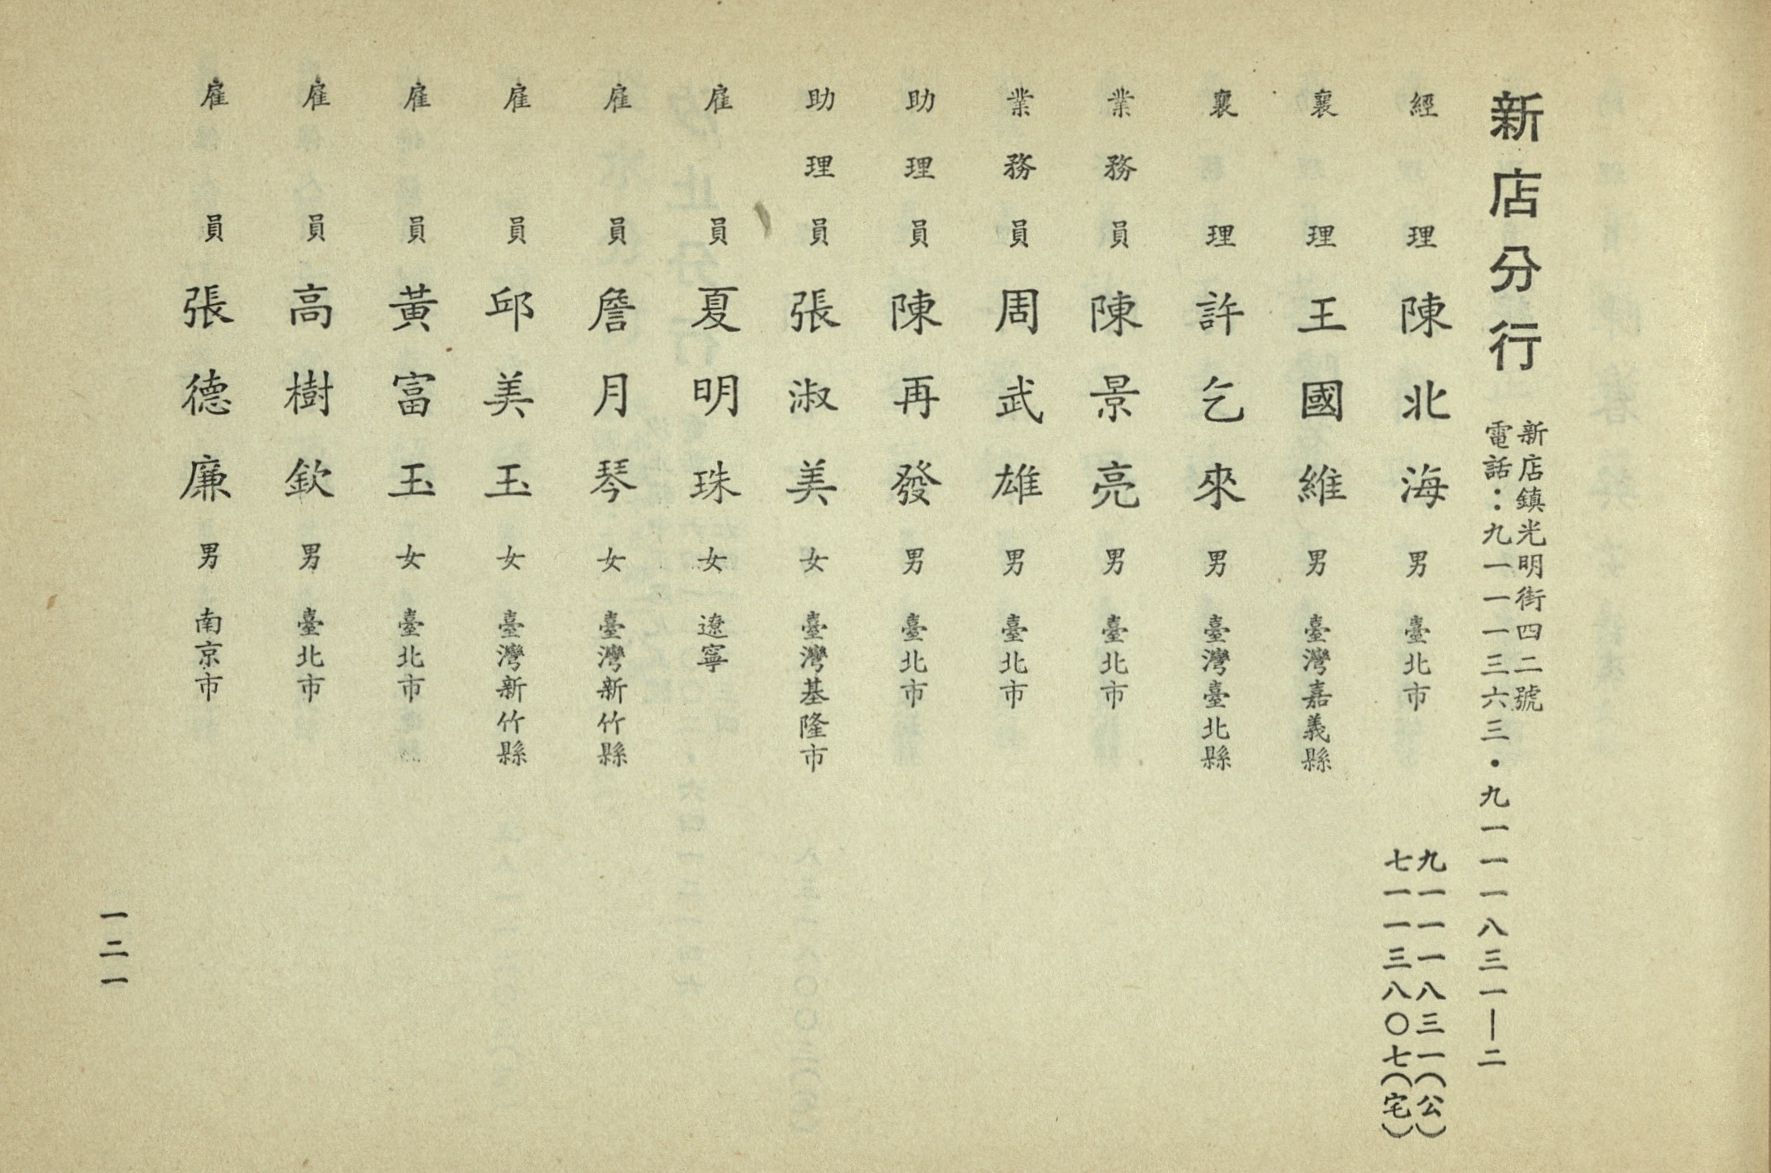 新店分行
新店鎮光明街四二號
電話：九一一一三六三・九一一一八三一—二
經理 陳北海 男 臺北市 九一一一八三一（公）
七一一三八〇七（宅）
襄理 王國維 男 臺灣嘉義縣
襄理 許乞來 男 臺灣臺北縣
業務員 陳景亮 男 臺北市
業務員 周武雄 男 臺北市
助理員 陳再發 男 臺北市
助理員 張淑美 女 臺灣基隆市
雇員 夏明珠 女 遼寧
雇員 詹月琴 女 臺灣新竹縣
雇員 邱美玉 女 臺灣新竹縣
雇員 黃富玉 女 臺北市
雇員 高樹欽 男 臺北市
雇員 張德廉 男 南京市
一二一